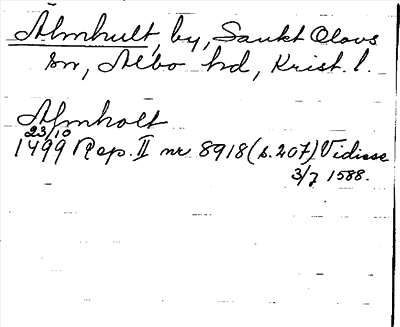 Älmhult, by, Sankt Olovs
sn, Albo hd, Krist. l.
Almholt
23/10
1499 Rep. II nr 8918 (s. 207) Vidisse
3/7 1588.